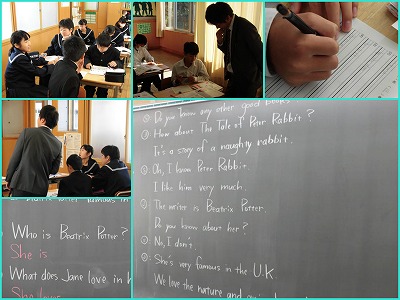 Do you know any other good books
How about The Tale of Peter Rabbit?
It's a story of a naughty rabbit.
Oh, I know Peter Rabbit.
I like him very much.
The writer is Beatrix Potter.
Do you know about her?
No, I don't.
She's very famous in the U.K.
We love the nature and
famous in
Who is Beatrix Potter?
She is
What does Jane love in h
She loves